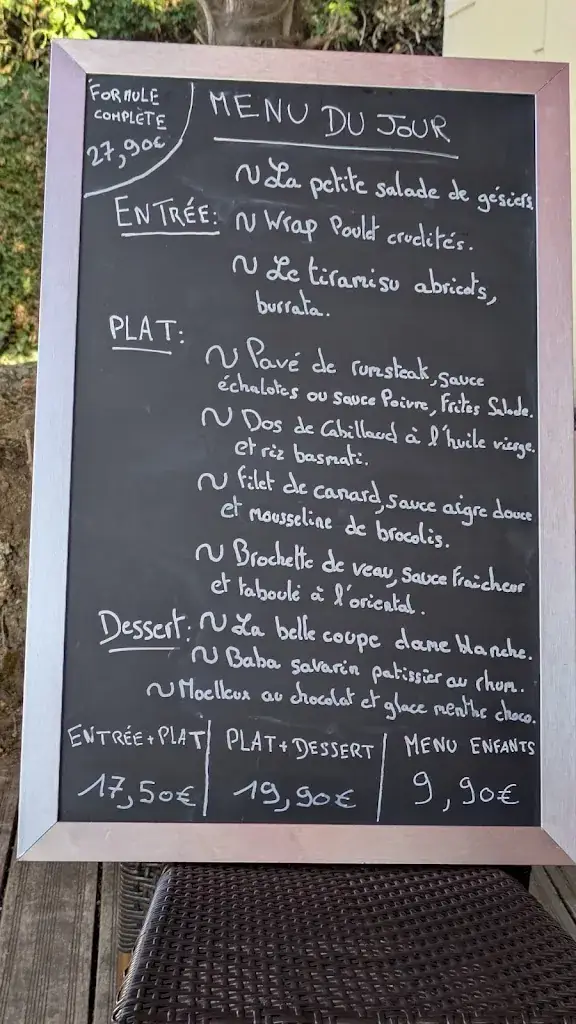 FORMULE
COMPLÈTE
27,90€
MENU DU JOUR
~ La petite salade de gésiers
ENTRÉE: ~ Wrap Poulet crudités.
~ Le tiramisu abricots,
burrata.
PLAT:
~ Pavé de rumsteak, sauce
échalotes ou sauce Poivre, Frites Salade.
~ Dos de Cabillaud à l'huile vierge.
et riz basmati.
~ Filet de canard, sauce aigre douce
et mousseline de brocolis.
~ Brochette de veau, sauce Fraicheur
et taboulé à l'oriental.
Dessert: ~ La belle coupe dame blanche.
~ Baba savarin patissier au rhum.
~ Moelleux au chocolat et glace menthe choco.
ENTRÉE+PLAT
17,50€
PLAT+DESSERT
19,90€
MENU ENFANTS
9,90€